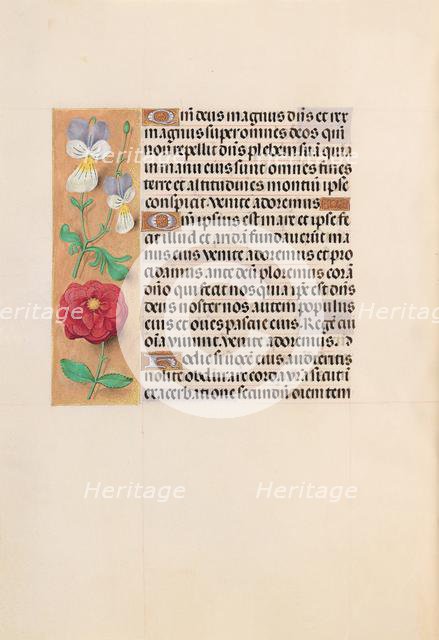 Qm̄ deus magnus dn̄s et rex
magnus super omnes deos qui
non repellit dn̄s plebem suā quia
in manu eius sunt omnes fines
terre et altitudines montiū ipse
conspicit Venite adoremus
Qm̄ ipsius est mare et ipse fe
cit illud et aridā fundauerūt ma
nus eius Venite adoremus et pro
cidamus ante deū ploremus corā
dn̄o qui fecit nos quia ipse est dn̄s
deus noster nos autem populus
eius et oues pascue eius Regē cui
oīa viuunt Venite adoremus
Hodie si uocē eius audieritis
nolite obdurare corda vrā sicut ī
exacerbatione secundū diem tem
Heritage
Heritage
Heritage
Heritage
Heritage
Heritage
Heritage